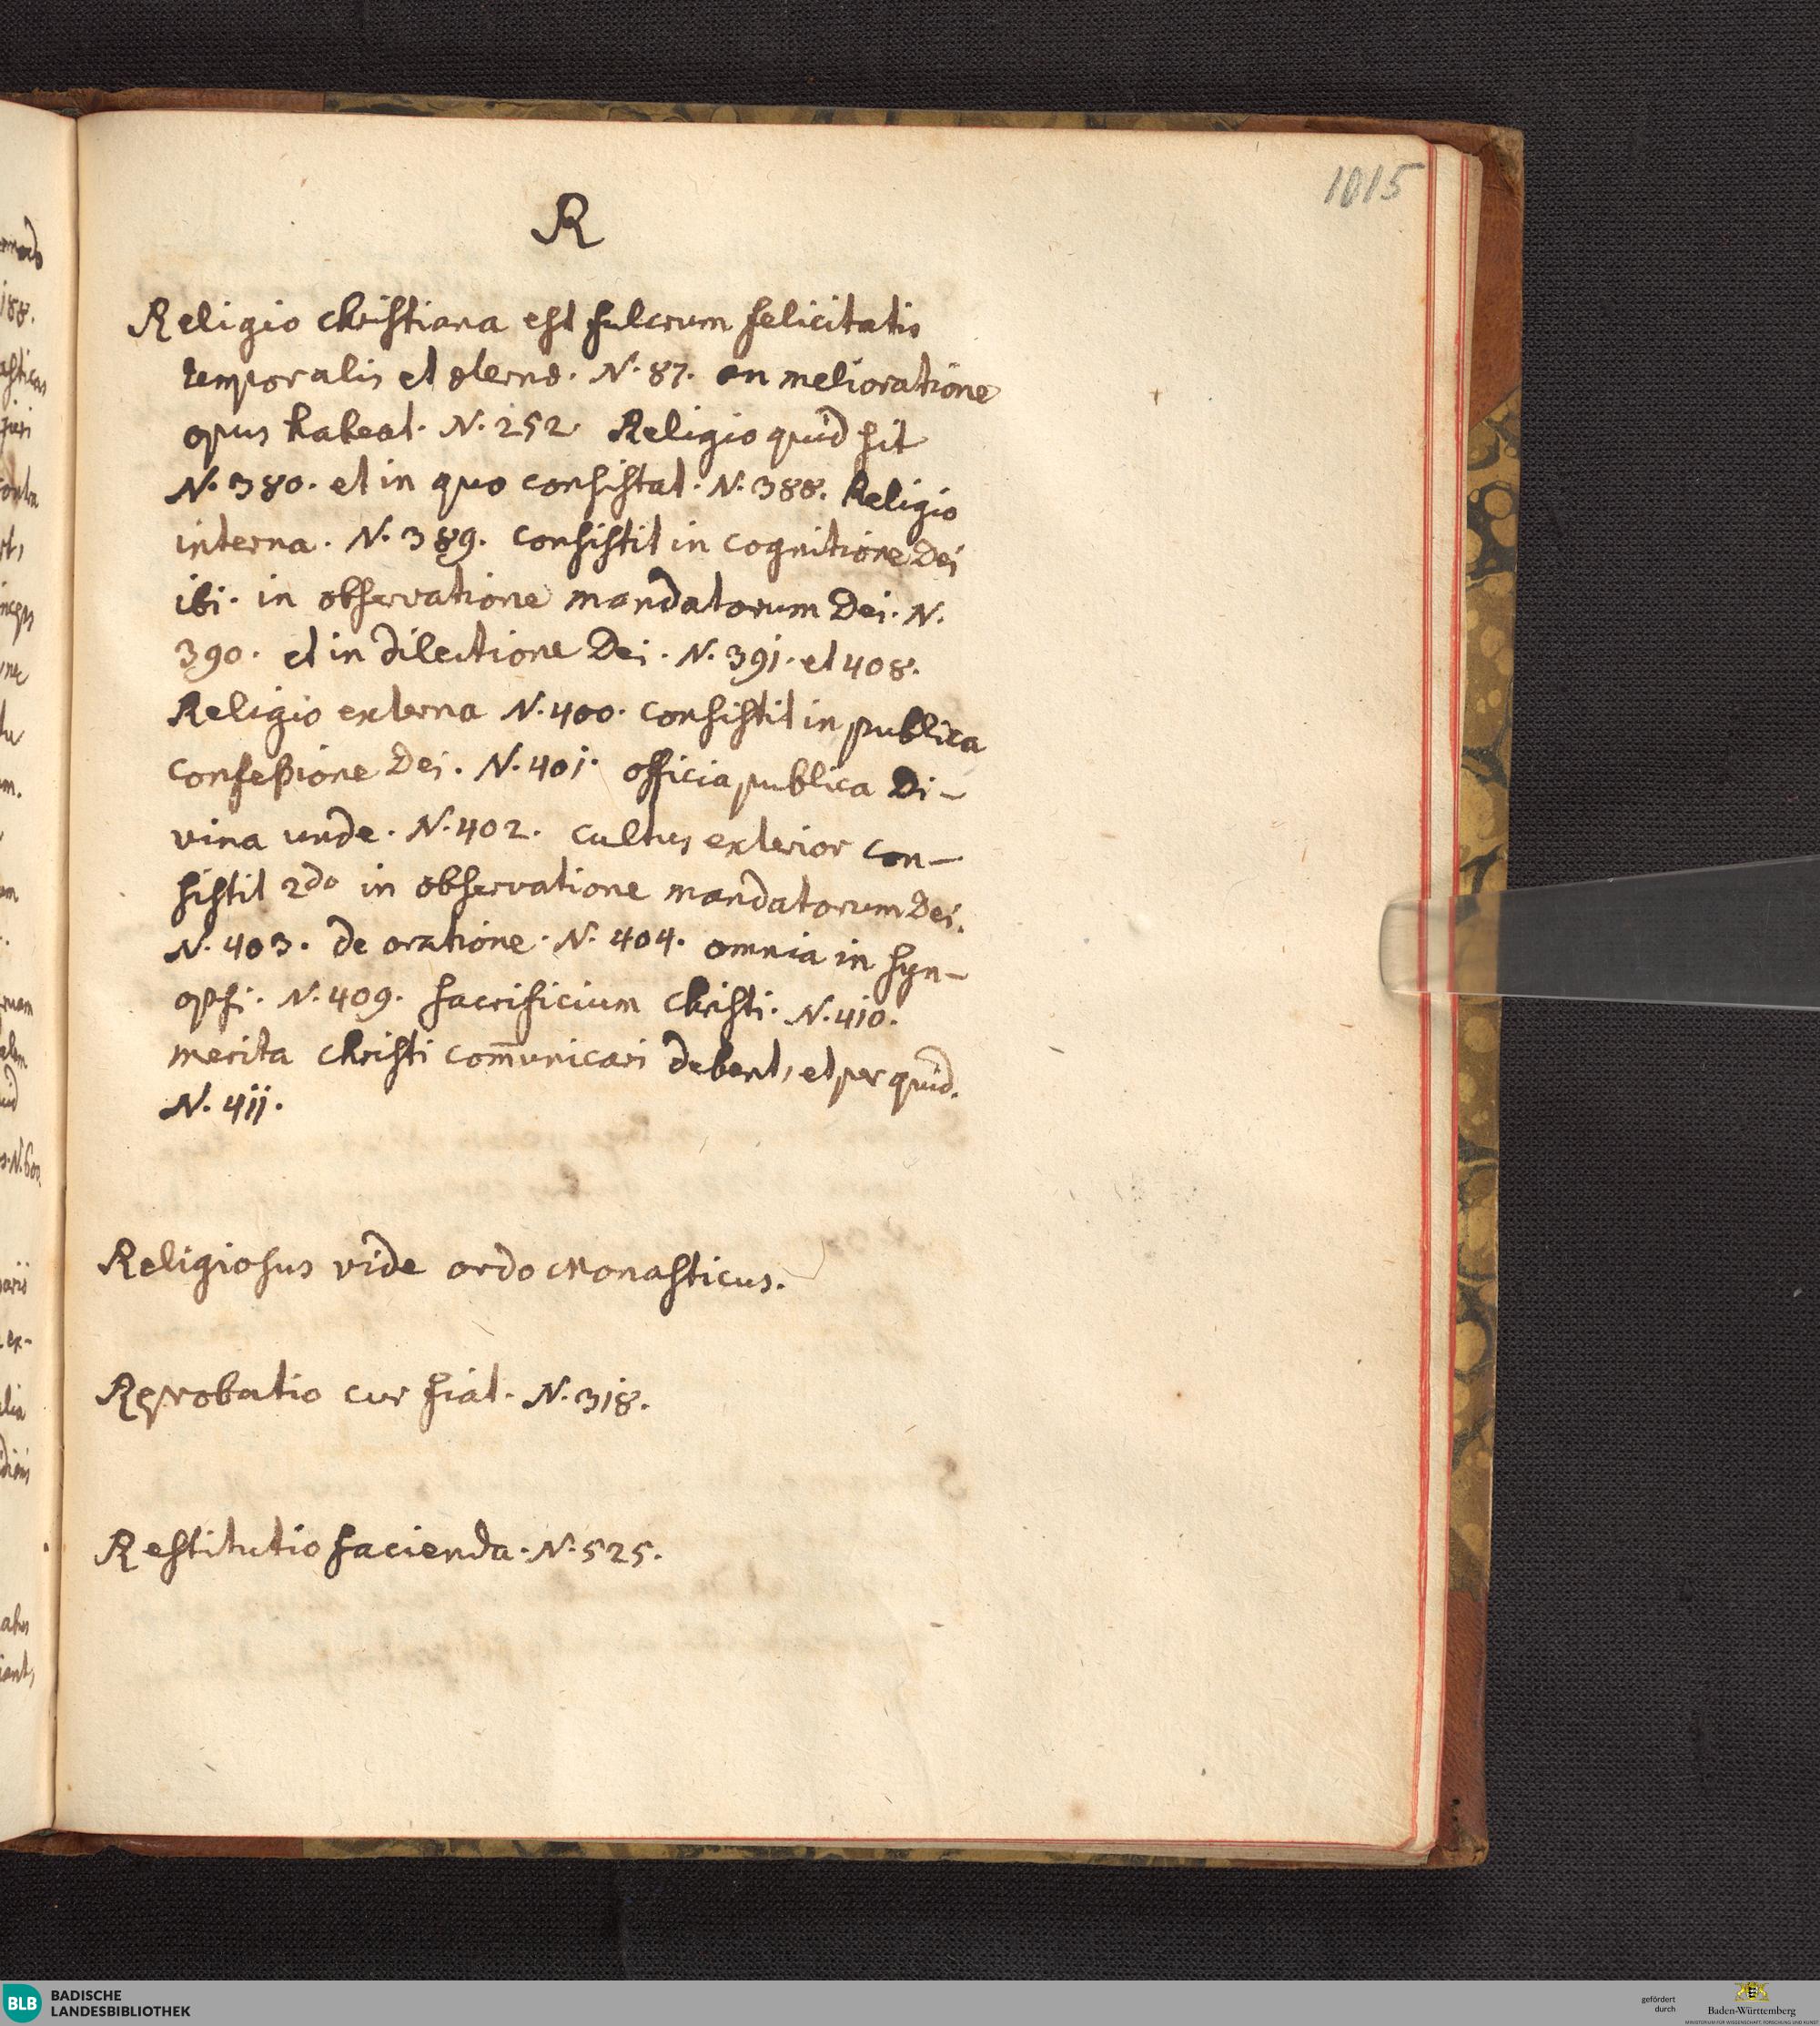 1015
R
Religio christiana est fulcrum felicitatis
temporalis et æternæ. N. 87. an melioratione
opus habeat. N. 252. Religio quid sit
N. 380. et in quo consistat. N. 388. Religio
interna. N. 389. consistit in cognitione Dei
ibi. in observatione mandatorum Dei. N.
390. et in dilectione Dei. N. 391. et 408.
Religio externa N. 400. consistit in publica
confeßione Dei. N. 401. officia publica Di-
vina unde. N. 402. cultus exterior con-
sistit 2do in observatione mandatorum Dei.
N. 403. de oratione. N. 404. omnia in syn-
opsi. N. 409. sacrificium christi. N. 410.
merita christi com̄unicari debent, et per quid.
N. 411.
Religiosus vide ordo Monasticus.
Reprobatio cur fiat. N. 318.
Restitutio facienda. N. 525.
BLB BADISCHE
LANDESBIBLIOTHEK
gefördert
durch
Baden-Württemberg